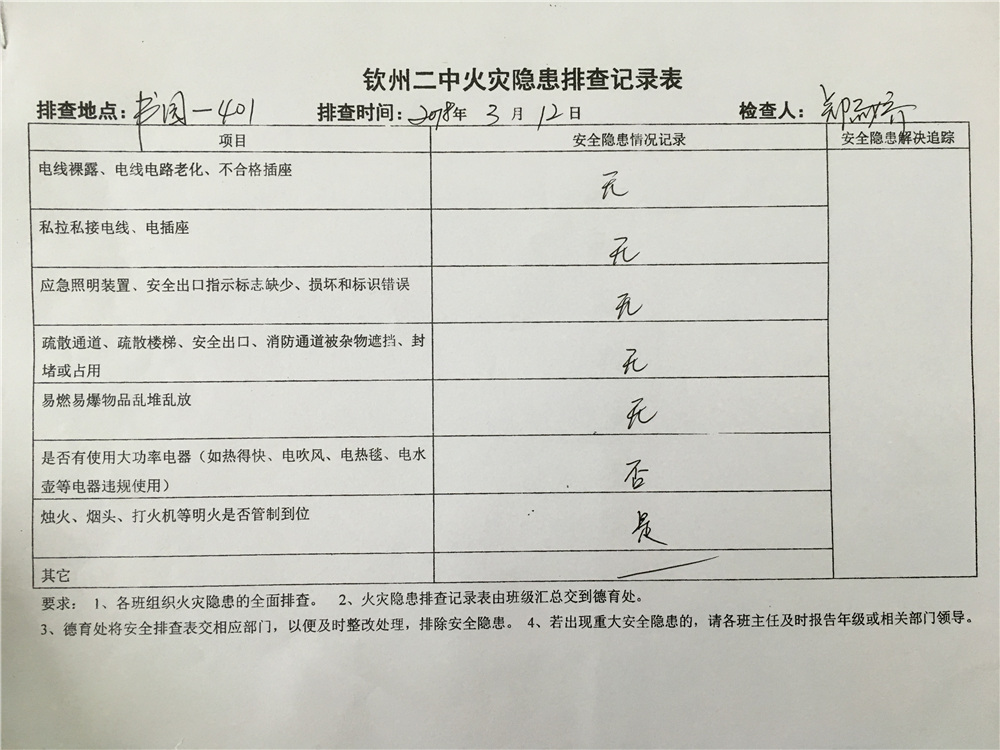 钦州二中火灾隐患排查记录表
排查地点：书园一401 排查时间：2018年 3 月 12 日 检查人：郑
项目 安全隐患情况记录 安全隐患解决追踪
电线裸露、电线电路老化、不合格插座 无
私拉私接电线、电插座 无
应急照明装置、安全出口指示标志缺少、损坏和标识错误 无
疏散通道、疏散楼梯、安全出口、消防通道被杂物遮挡、封
堵或占用 无
易燃易爆物品乱堆乱放 无
是否有使用大功率电器（如热得快、电吹风、电热毯、电水
壶等电器违规使用） 否
烛火、烟头、打火机等明火是否管制到位 是
其它
要求： 1、各班组织火灾隐患的全面排查。 2、火灾隐患排查记录表由班级汇总交到德育处。
3、德育处将安全排查表交相应部门，以便及时整改处理，排除安全隐患。 4、若出现重大安全隐患的，请各班主任及时报告年级或相关部门领导。